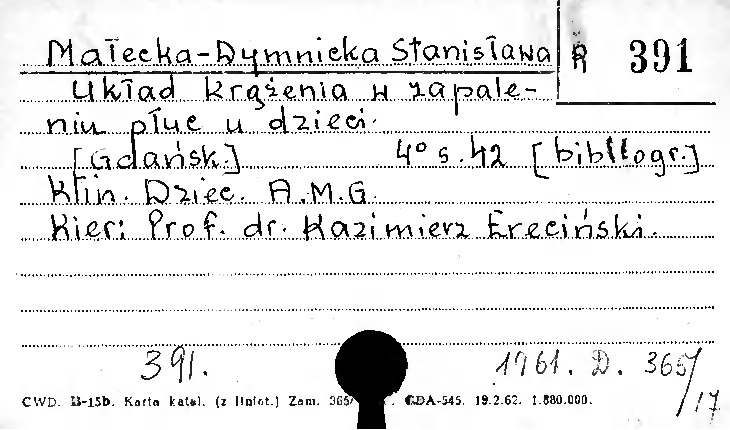 Małecka-Dymnicka Stanisława
R 391
Układ krążenia w zapale-
niu płuc u dzieci.
[Gdańsk.] 4° s. 42 [bibliogr.]
Klin. Dziec. A.M.G.
Kier: Prof. dr. Kazimierz Ereciński.
391. 1961. D. 365/17
CWD. B-15b. Karta katal. (z liniat.) Zam. 365/ GDA-545. 19.2.62. 1.880.000.